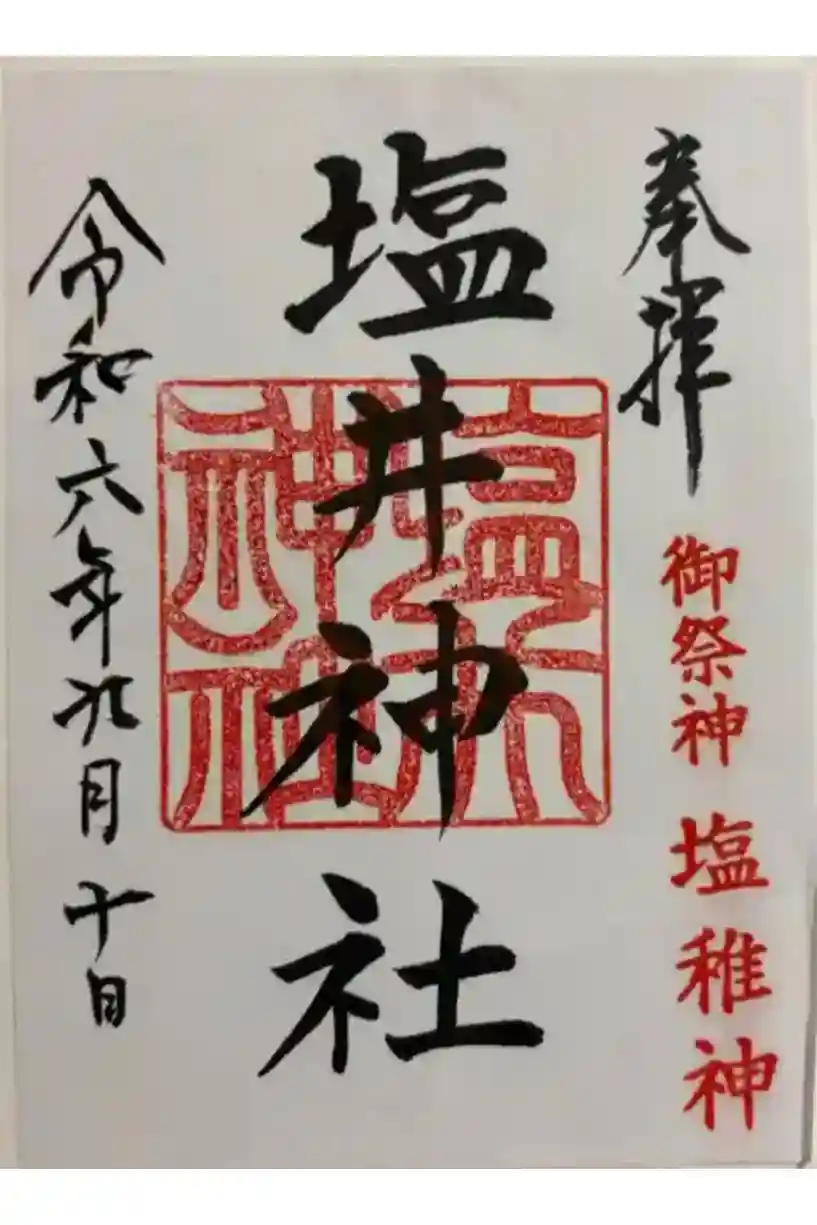 奉拝
御祭神 塩稚神
塩井神社
塩井
神社
令和六年九月十日